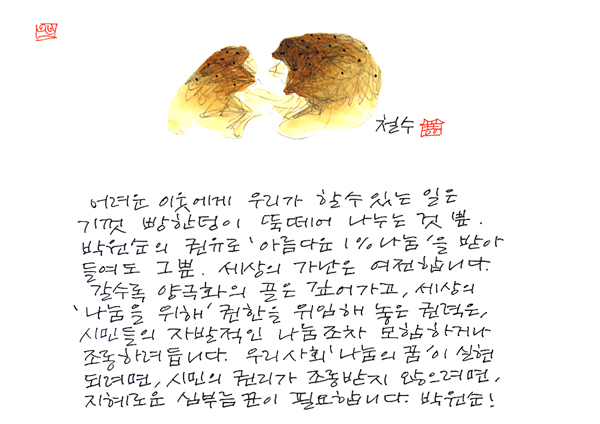 철수
어려운 이웃에게 우리가 할수 있는 일은
기껏 빵한덩이 뚝떼어 나누는 것 뿐.
박원순의 권유로 '아름다운 1% 나눔'을 받아
들여도 그뿐. 세상의 가난은 여전합니다.
갈수록 양극화의 골은 깊어가고, 세상의
'나눔을 위해' 권한을 위임해 놓은 권력은,
시민들의 자발적인 나눔조차 모함하거나
조롱하려듭니다. 우리사회 '나눔의 꿈'이 실현
되려면, 시민의 권리가 조롱받지 않으려면,
지혜로운 심부름꾼이 필요합니다. 박원순!